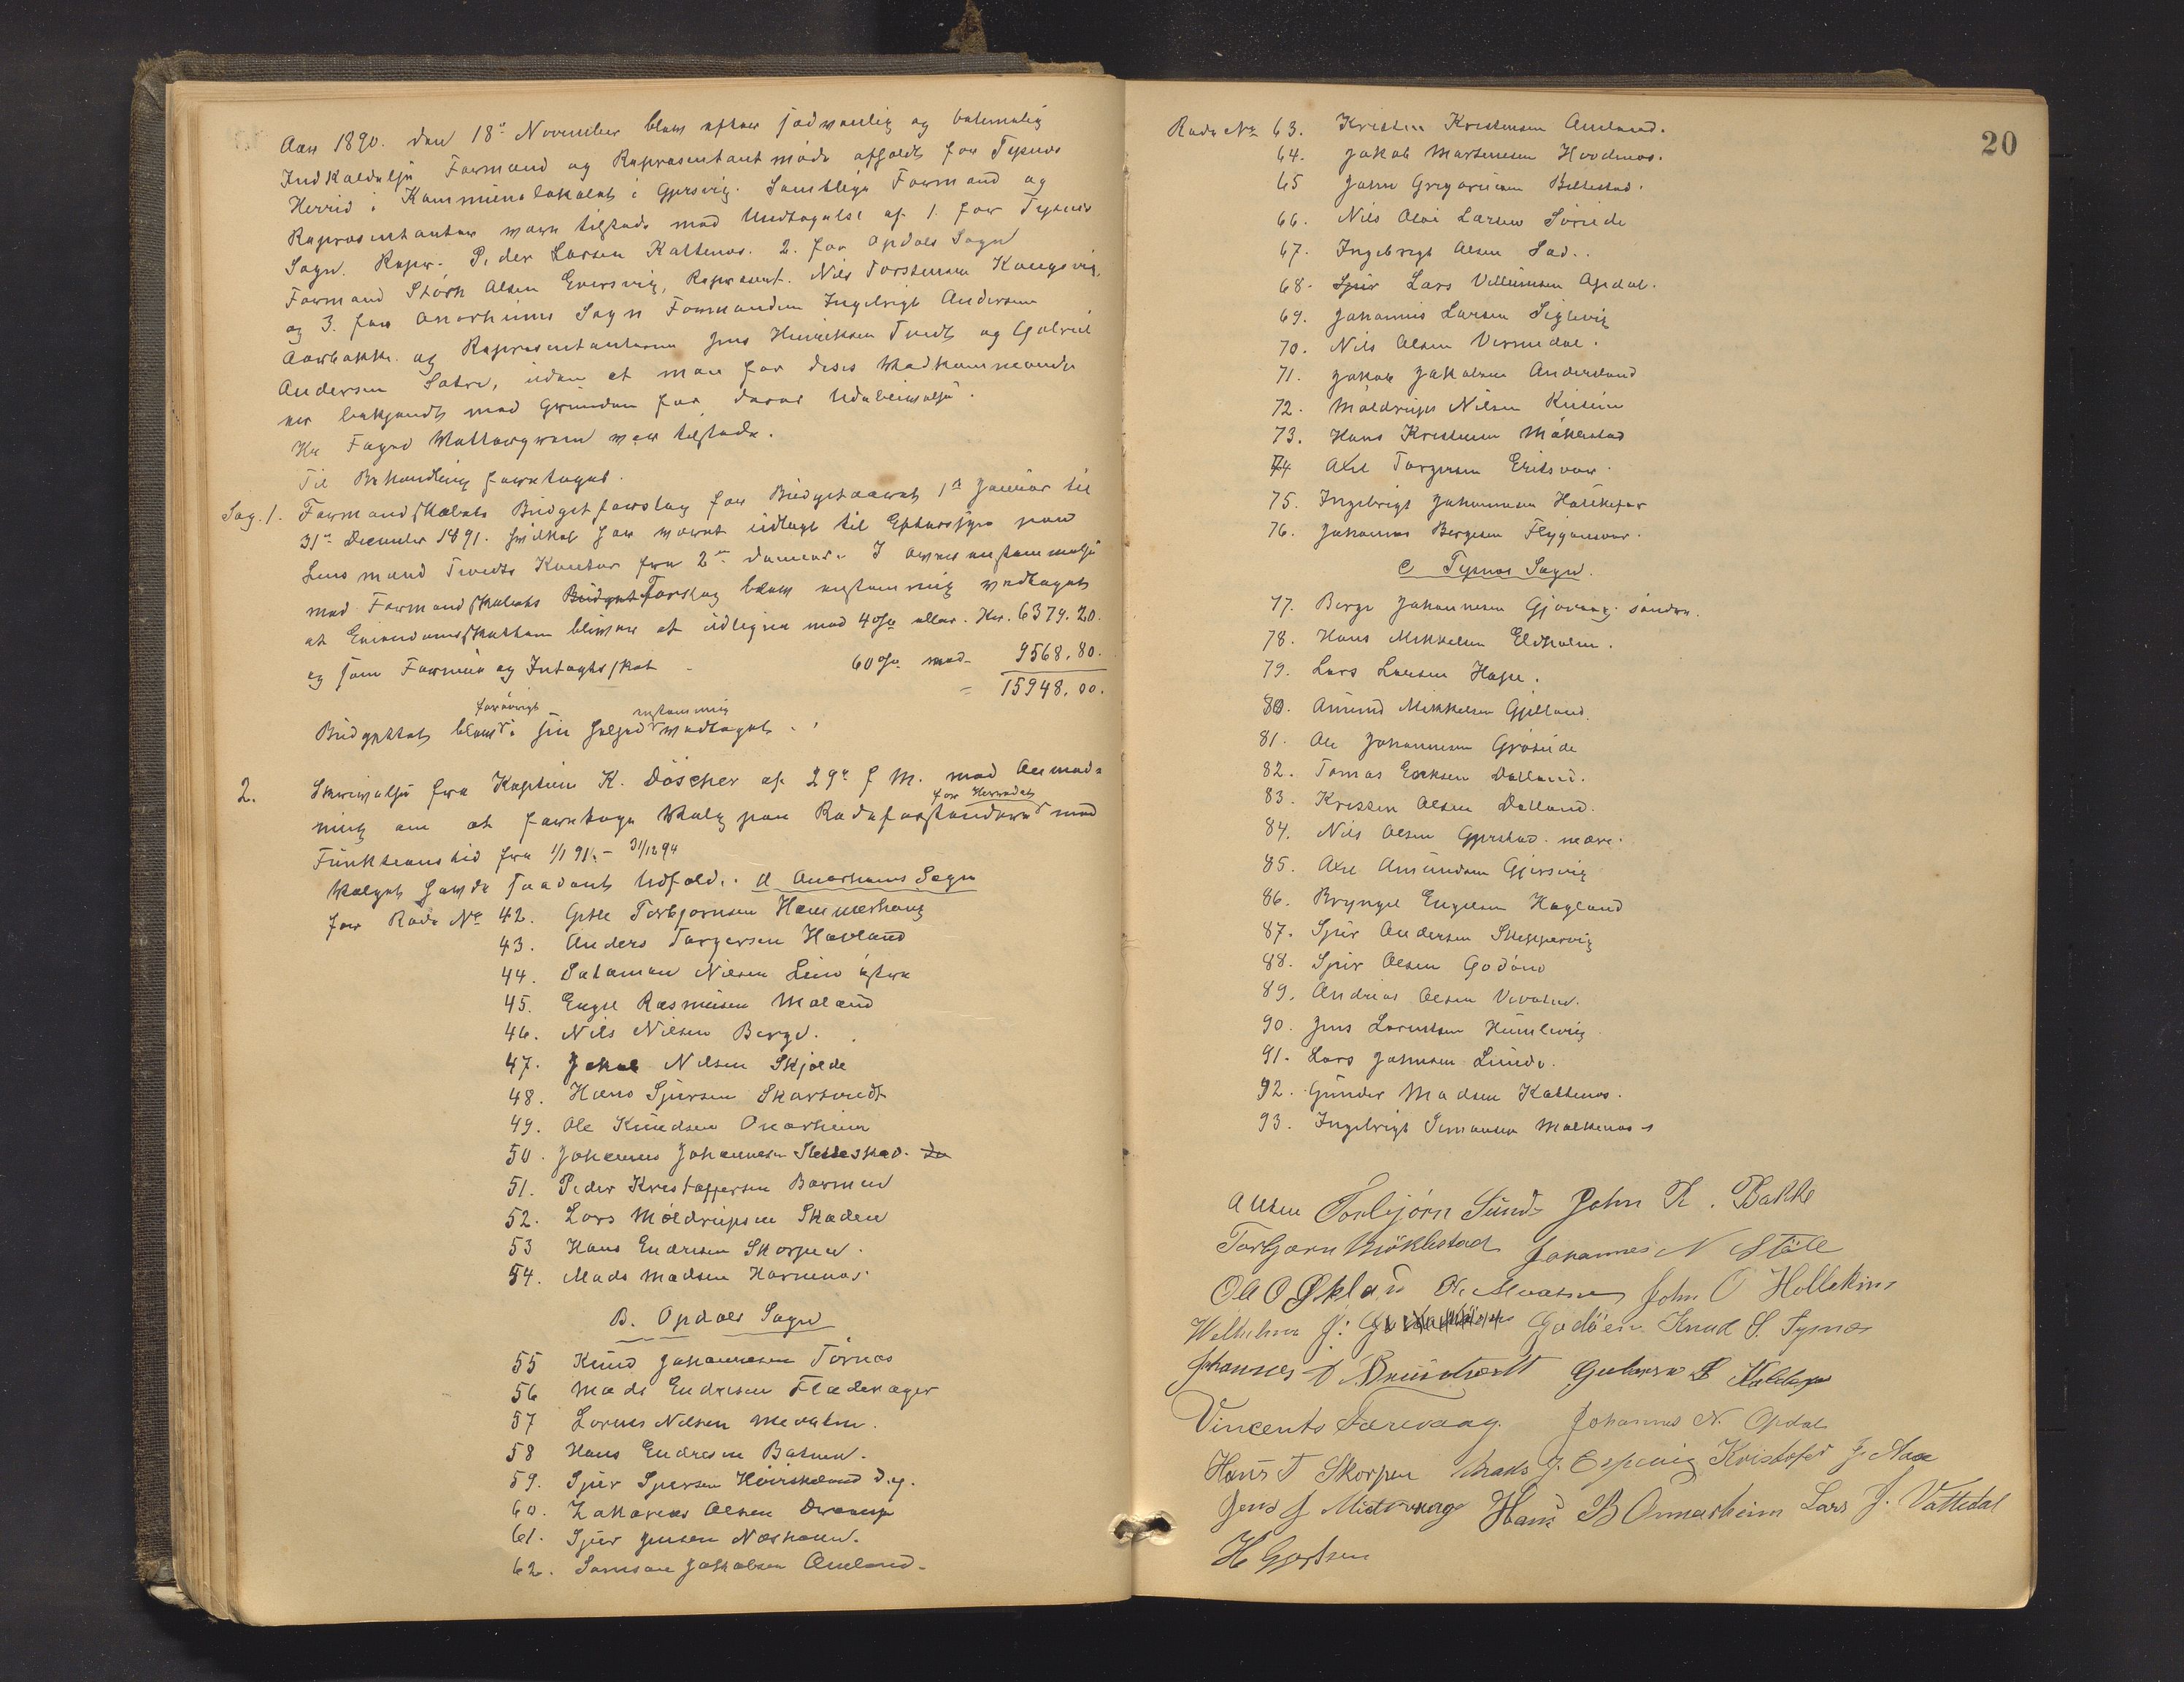 Aar 1890. den 18de November blew efter sædvanlig og betimelig
Indkaldelse Formand og Repræsentantmøde afholdt for Tysnes
Herred i Kommunelokalet i Gjersvig. Samtlige Formænd og
Repræsentanter vare tilstede med Undtagelse af 1. for Tysnes
Sogn. Repr. Peder Larsen Kattenes. 2. for Opdals Sogn
Formand Størk Olsen Eversvig, Represent. Nils Torstensen Kongsvig,
og 3. for Onarheims Sogn Formanden Ingebrigt Andersen
Aarbakke og Repræsentanterne Jens Henriksen Tvedt og Gabriel
Andersen Sætre, uden at man for disses Vedkommende
er bekjendt med Grunden for deres Udeblivelse.
Hr Foged Wattergreen var tilstede.
Til Behandling foretoges.
Sag. 1. Formandskabets Budgetforslag for Budgetaaret 1ste Januar til
31te December 1891. hvilket har været udlagt til Eftersyn paa
Lensmand Tvedts Kontor fra 2den dennes. I overensstemmelse
med Formandskabets Budget Forslag blev enstemmig vedtaget
at Eiendomsskatten bliver at udligne med 40% eller Kr. 6379.20.
og som Formue og Indtægtsskat - 60% med 9568,80.
= 15948,00.
forøvrigt enstemmig
Budgettet blev i sin helhed vedtaget.
2. Skrivelse fra Kaptein K. Döscher af 29de f. M. med Anmod-
for Herredet
ning om at foretage Valg paa Rodeforstandere med
Funktionstid fra 1/1 91 - 31/12 94
Valget havde saadant Udfald. A Onarheims Sogn
for Rode No 42. Gitle Torbjørnsen Hammerhaug
43. Anders Torgersen Hovland
44. Salamon Nilsen Lien østre
45. Engel Rasmusen Maland
46. Nils Nilsen Berge.
47. Jakob Nilsen Skjolde
48. Hans Sjursen Skartvedt
49. Ole Knudsen Onarheim
50. Johannes Johannesen
51. Peder Kristoffersen Bormen
52. Lars Møldrupsen Skaden
53 Hans Endresen Skorpen.
54. Mads Madsen Hornenes.
B. Opdals Sogn
55 Knud Johannesen Tørnes
56 Mads Endresen Fladerager
57 Lorens Nilsen
58 Hans Endresen
59. Sjur Sjursen
60. Zakarias Olsen
61. Sjur Jensen
62. Samson Jakobsen Amland.
Rode No 63. Kristen Kristensen Amland.
64. Jakob Martenesen Hovdenes.
65 John Gregoriusen
66. Nils Olai Larsen Søreide
67. Ingebrigt Olsen
68. Sjur Lars Villumsen Opdal.
69. Johannes Larsen Siglevig
70. Nils Olsen Vernedal.
71. Jakob Jakobsen Anderland
72. Møldrup Nilsen
73. Hans Kristensen Møklestad
74 Axel Torgersen
75. Ingebrigt Johannesen
76. Johannes Bergesen Flygansvær.
C Tysnes Sogn.
77. Berge Johannesen Gjøvaag søndre.
78. Hans Mikkelsen Eldholm.
79. Lars Larsen Hope.
80. Amund Mikkelsen Gjelland.
81. Ole Johannesen
82. Tomas Eriksen Dalland.
83. Kristen Olsen Dalland.
84. Nils Olsen Gjerstad nedre.
85. Axel Amundsen Gjersvig
86. Brynjel Engelsen Hagland
87. Sjur Andersen Skeppervig
88. Sjur Olsen Godøen
89. Andreas Olsen
90. Jens Lorentsen Humlevig
91. Lars Johnsen Lunde.
92. Gunder Madsen Kattenes.
93. Ingebrigt Simonsen Malkenes
A Olsen Torbjørn Sund John R. Bakke
Torbjørn Møklestad Johannes N Støle
Ole O Økland John O Hollekim
Wilhelm J. Godøen Knud S. Tysnes
Johannes
Vincents Færevaag. Johannes N. Opdal
Hans T Skorpen Mads J. Espevig Kristofer J. Aase
Jens J. Hans B Onnarheim Lars J. Vattedal
H Gjertsen
20